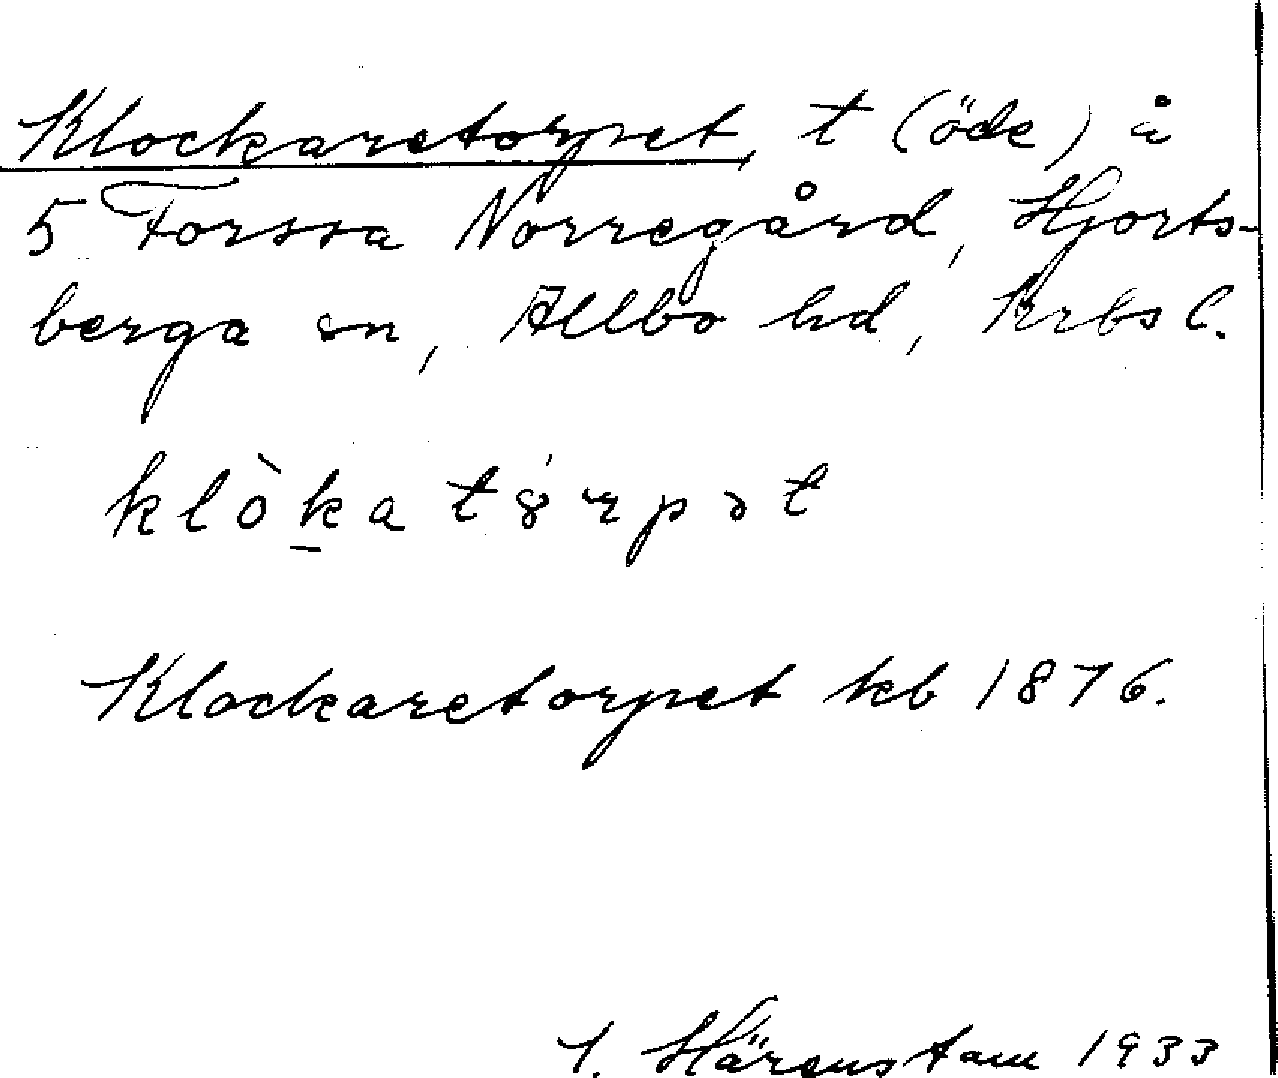 Klockaretorpet, t (öde) å
5 Forssa Norregård, Hjorts-
berga sn, Allbo hd, Krbs l.
klòḵa tórpət
Klockaretorpet kb 1876.
Härenstam 1933